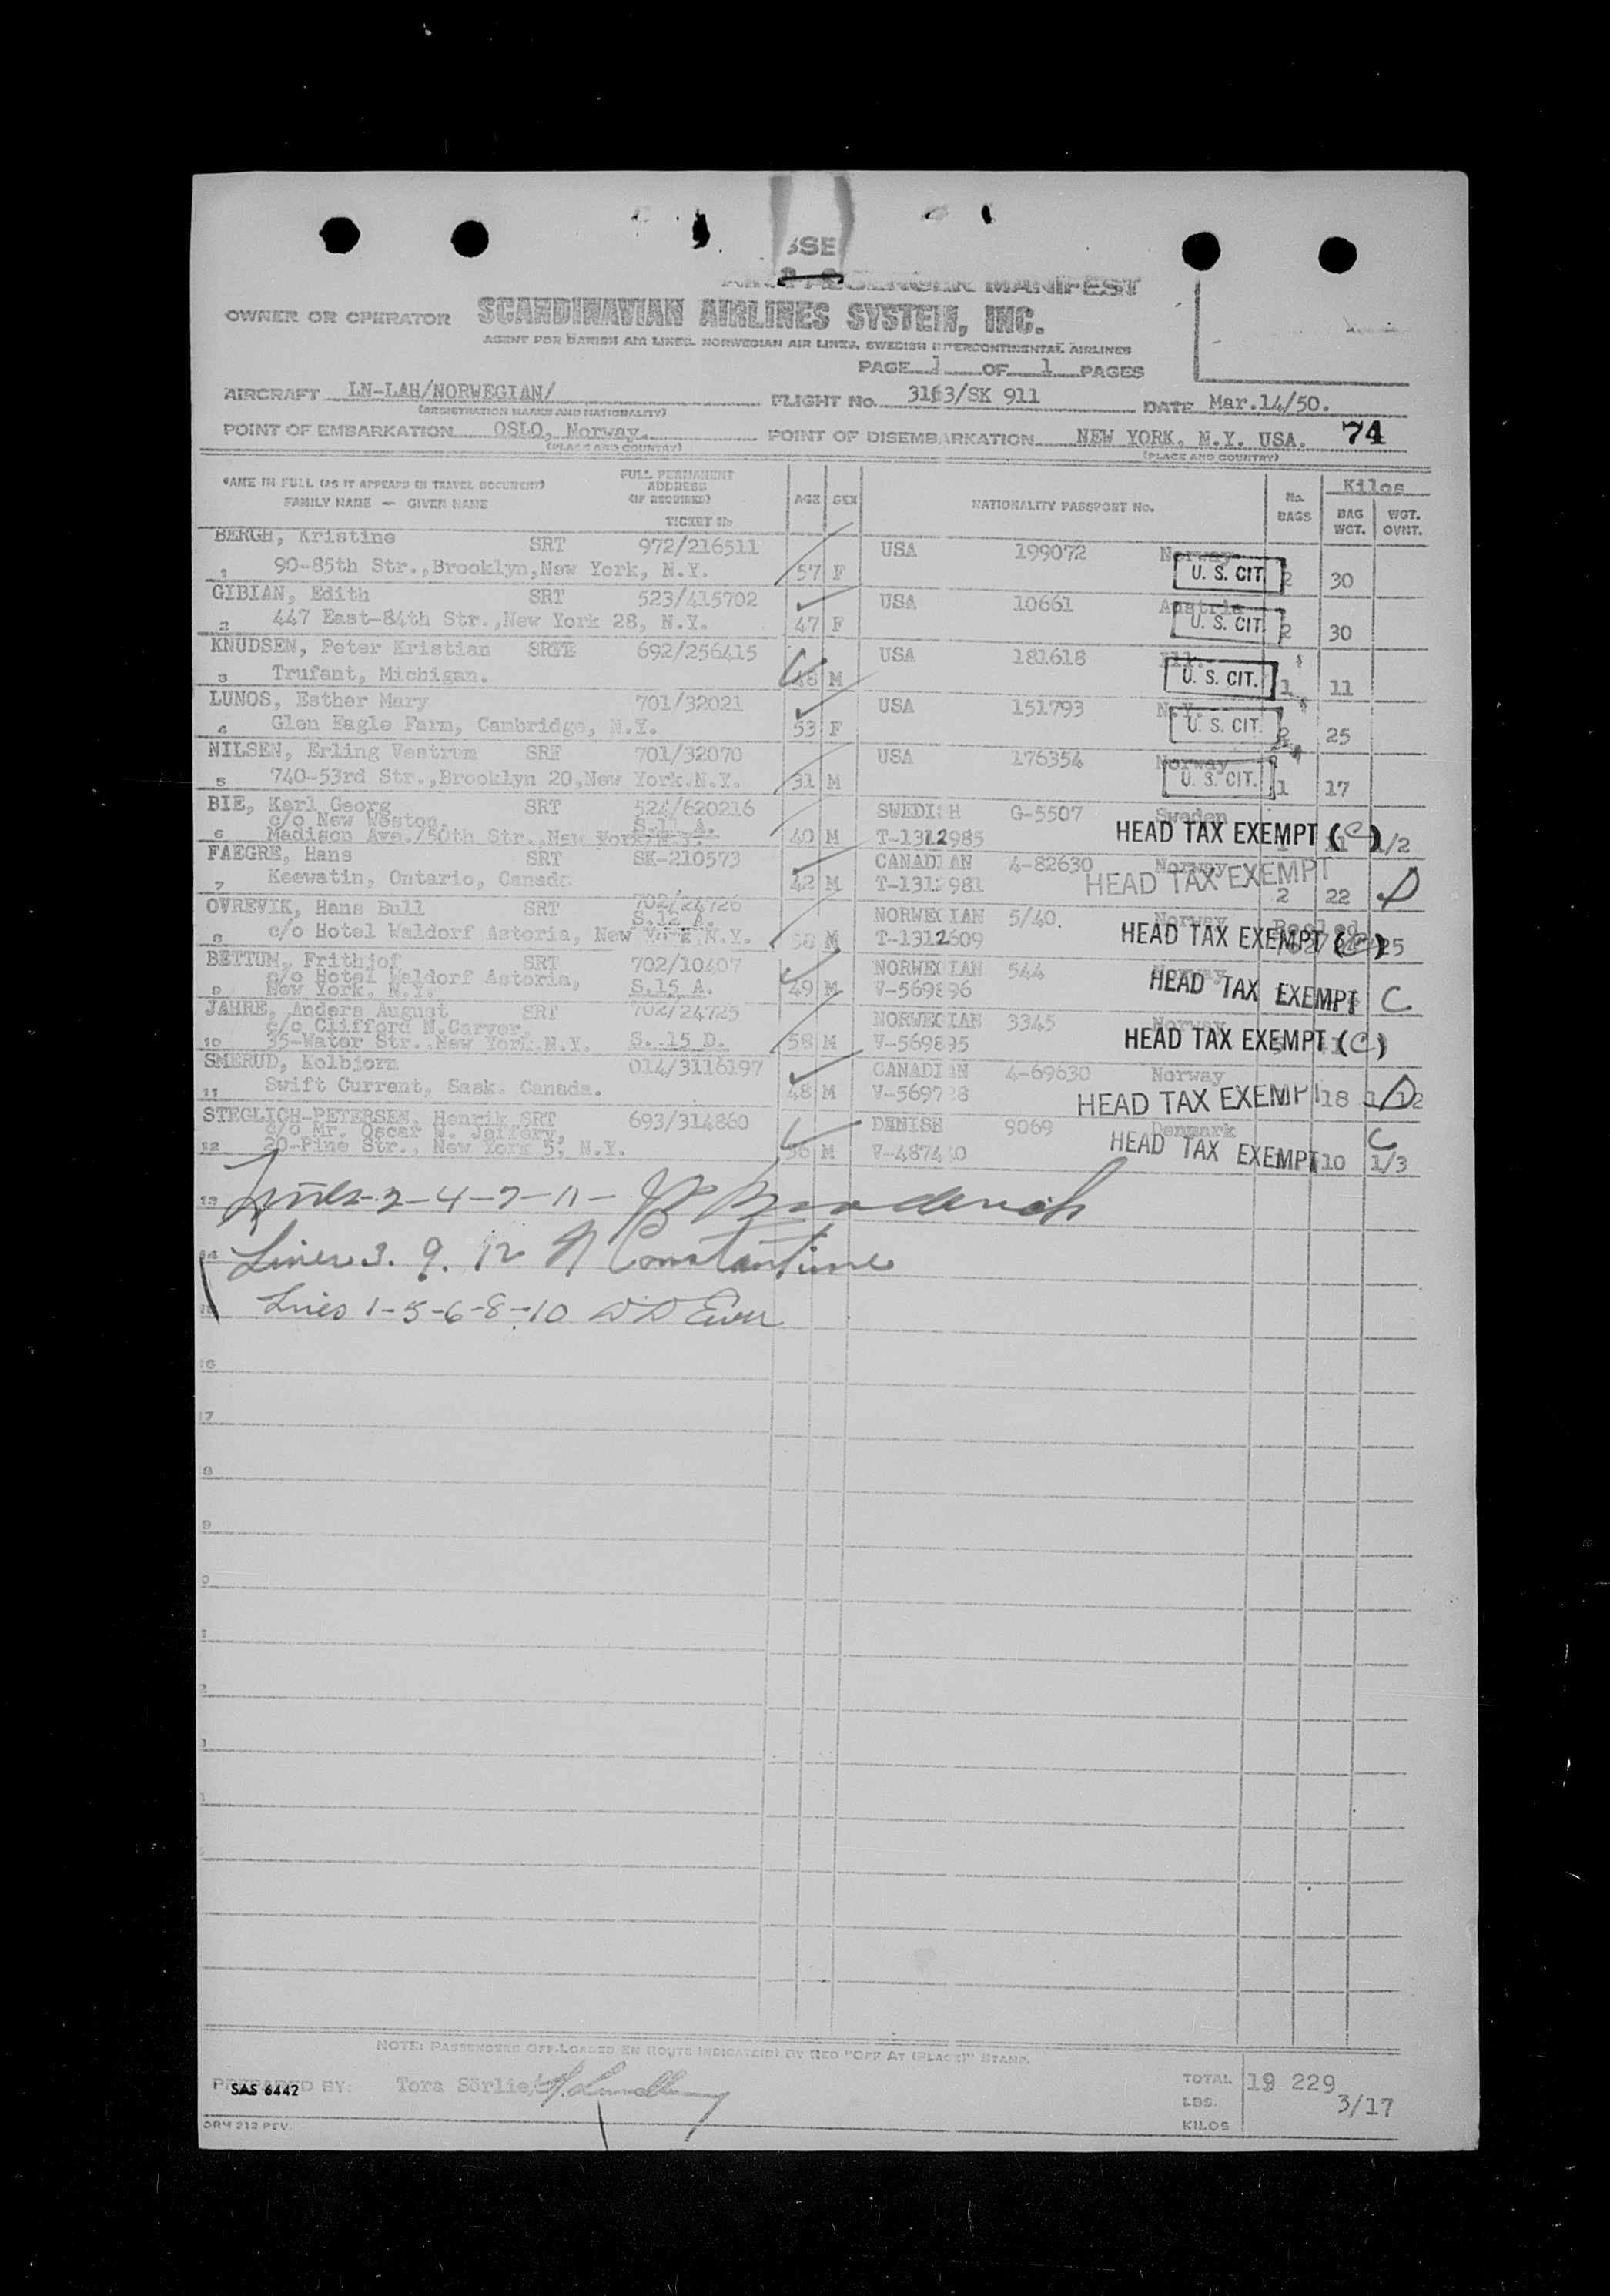 SSE
PASSENGER MANIFEST
OWNER OR OPERATOR SCANDINAVIAN AIRLINES SYSTEM, INC.
AGENT FOR DANISH AIR LINES, NORWEGIAN AIR LINES, SWEDISH INTERCONTINENTAL AIRLINES
PAGE 1 OF 1 PAGES
AIRCRAFT LN-LAH/NORWEGIAN/ FLIGHT No. 3163/SK 911 DATE Mar.14/50.
(REGISTRATION MARKS AND NATIONALITY)
POINT OF EMBARKATION OSLO, Norway. POINT OF DISEMBARKATION NEW YORK. N.Y. USA. 74
(PLACE AND COUNTRY) (PLACE AND COUNTRY)
NAME IN FULL (AS IT APPEARS IN TRAVEL DOCUMENT) FULL PERMANENT ADDRESS (IF REQUIRED) AGE SEX NATIONALITY PASSPORT No. No. BAGS Kilos
FAMILY NAME — GIVEN NAME TICKET No BAG WGT. WGT. OVNT.
BERGH, Kristine SRT 972/216511 USA 199072 Norway
1 90-85th Str.,Brooklyn,New York, N.Y. 57 F U. S. CIT. 2 30
GIBIAN, Edith SRT 523/415702 USA 10661 Austria
2 447 East-84th Str.,New York 28, N.Y. 47 F U. S. CIT. 2 30
KNUDSEN, Peter Kristian 692/256415 USA 181618 Ill.
3 Trufant, Michigan. 48 M U. S. CIT. 1 11
LUNOS, Esther Mary 701/32021 USA 151793 N.Y.
4 Glen Eagle Farm, Cambridge, N.Y. 53 F U. S. CIT. 2 25
NILSEN, Erling Vestrum SRT 701/32070 USA 176354 Norway
5 740-53rd Str.,Brooklyn 20,New York.N.Y. 31 M U. S. CIT. 1 17
BIE, Karl Georg SRT 524/620216 SWEDISH G-5507 Sweden
c/o New Weston.
6 Madison Ave./50th Str.,New York, N.Y. 40 M T-1312985 HEAD TAX EXEMPT (C) 1/2
FAEGRE, Hans SRT SK-210573 CANADIAN 4-82630 Norway
7 Keewatin, Ontario, Canada 42 M T-1312981 HEAD TAX EXEMPT 2 22 D
OVREVIK, Hans Bull SRT 702/24726 NORWEGIAN 5/40. Norway Pooled
S.12 A.
8 c/o Hotel Waldorf Astoria, New York, N.Y. 58 M T-1312609 HEAD TAX EXEMPT (C)
BETTUM, Frithjof SRT 702/10407 NORWEGIAN 544 Norway
c/o Hotel Waldorf Astoria,
9 New York, N.Y. S.15 A. 49 M V-569896 HEAD TAX EXEMPT C
JAHRE, Anders August SRT 702/24725 NORWEGIAN 3345 Norway
c/o Clifford N.Carver,
10 35-Water Str.,New York.N.Y. S. 15 D. 58 M V-569895 HEAD TAX EXEMPT (C)
SMERUD, Kolbjorn 014/3116197 CANADIAN 4-69630 Norway
11 Swift Current, Sask. Canada. 48 M HEAD TAX EXEMPT 18 D
STEGLICH-PETERSEN, Henrik SRT 693/314860 DENISH 9069 Denmark
c/o Mr. Oscar W. Jeffery,
12 20-Pine Str., New York 5, N.Y. 36 M HEAD TAX EXEMPT 10 C 1/3
13 Lines-2-4-7-11-
14 Lines 3. 9. 12 Constantine
15 Lines 1-5-6-8-10
16
NOTE: PASSENGERS OFF-LOADED EN ROUTE INDICATE(D) BY RED "OFF AT (PLACE)" STAMP.
PREPARED BY: SAS 6442 Tora Sörlie TOTAL 19 229
LBS. 3/17
KILOS
FORM 212 REV.